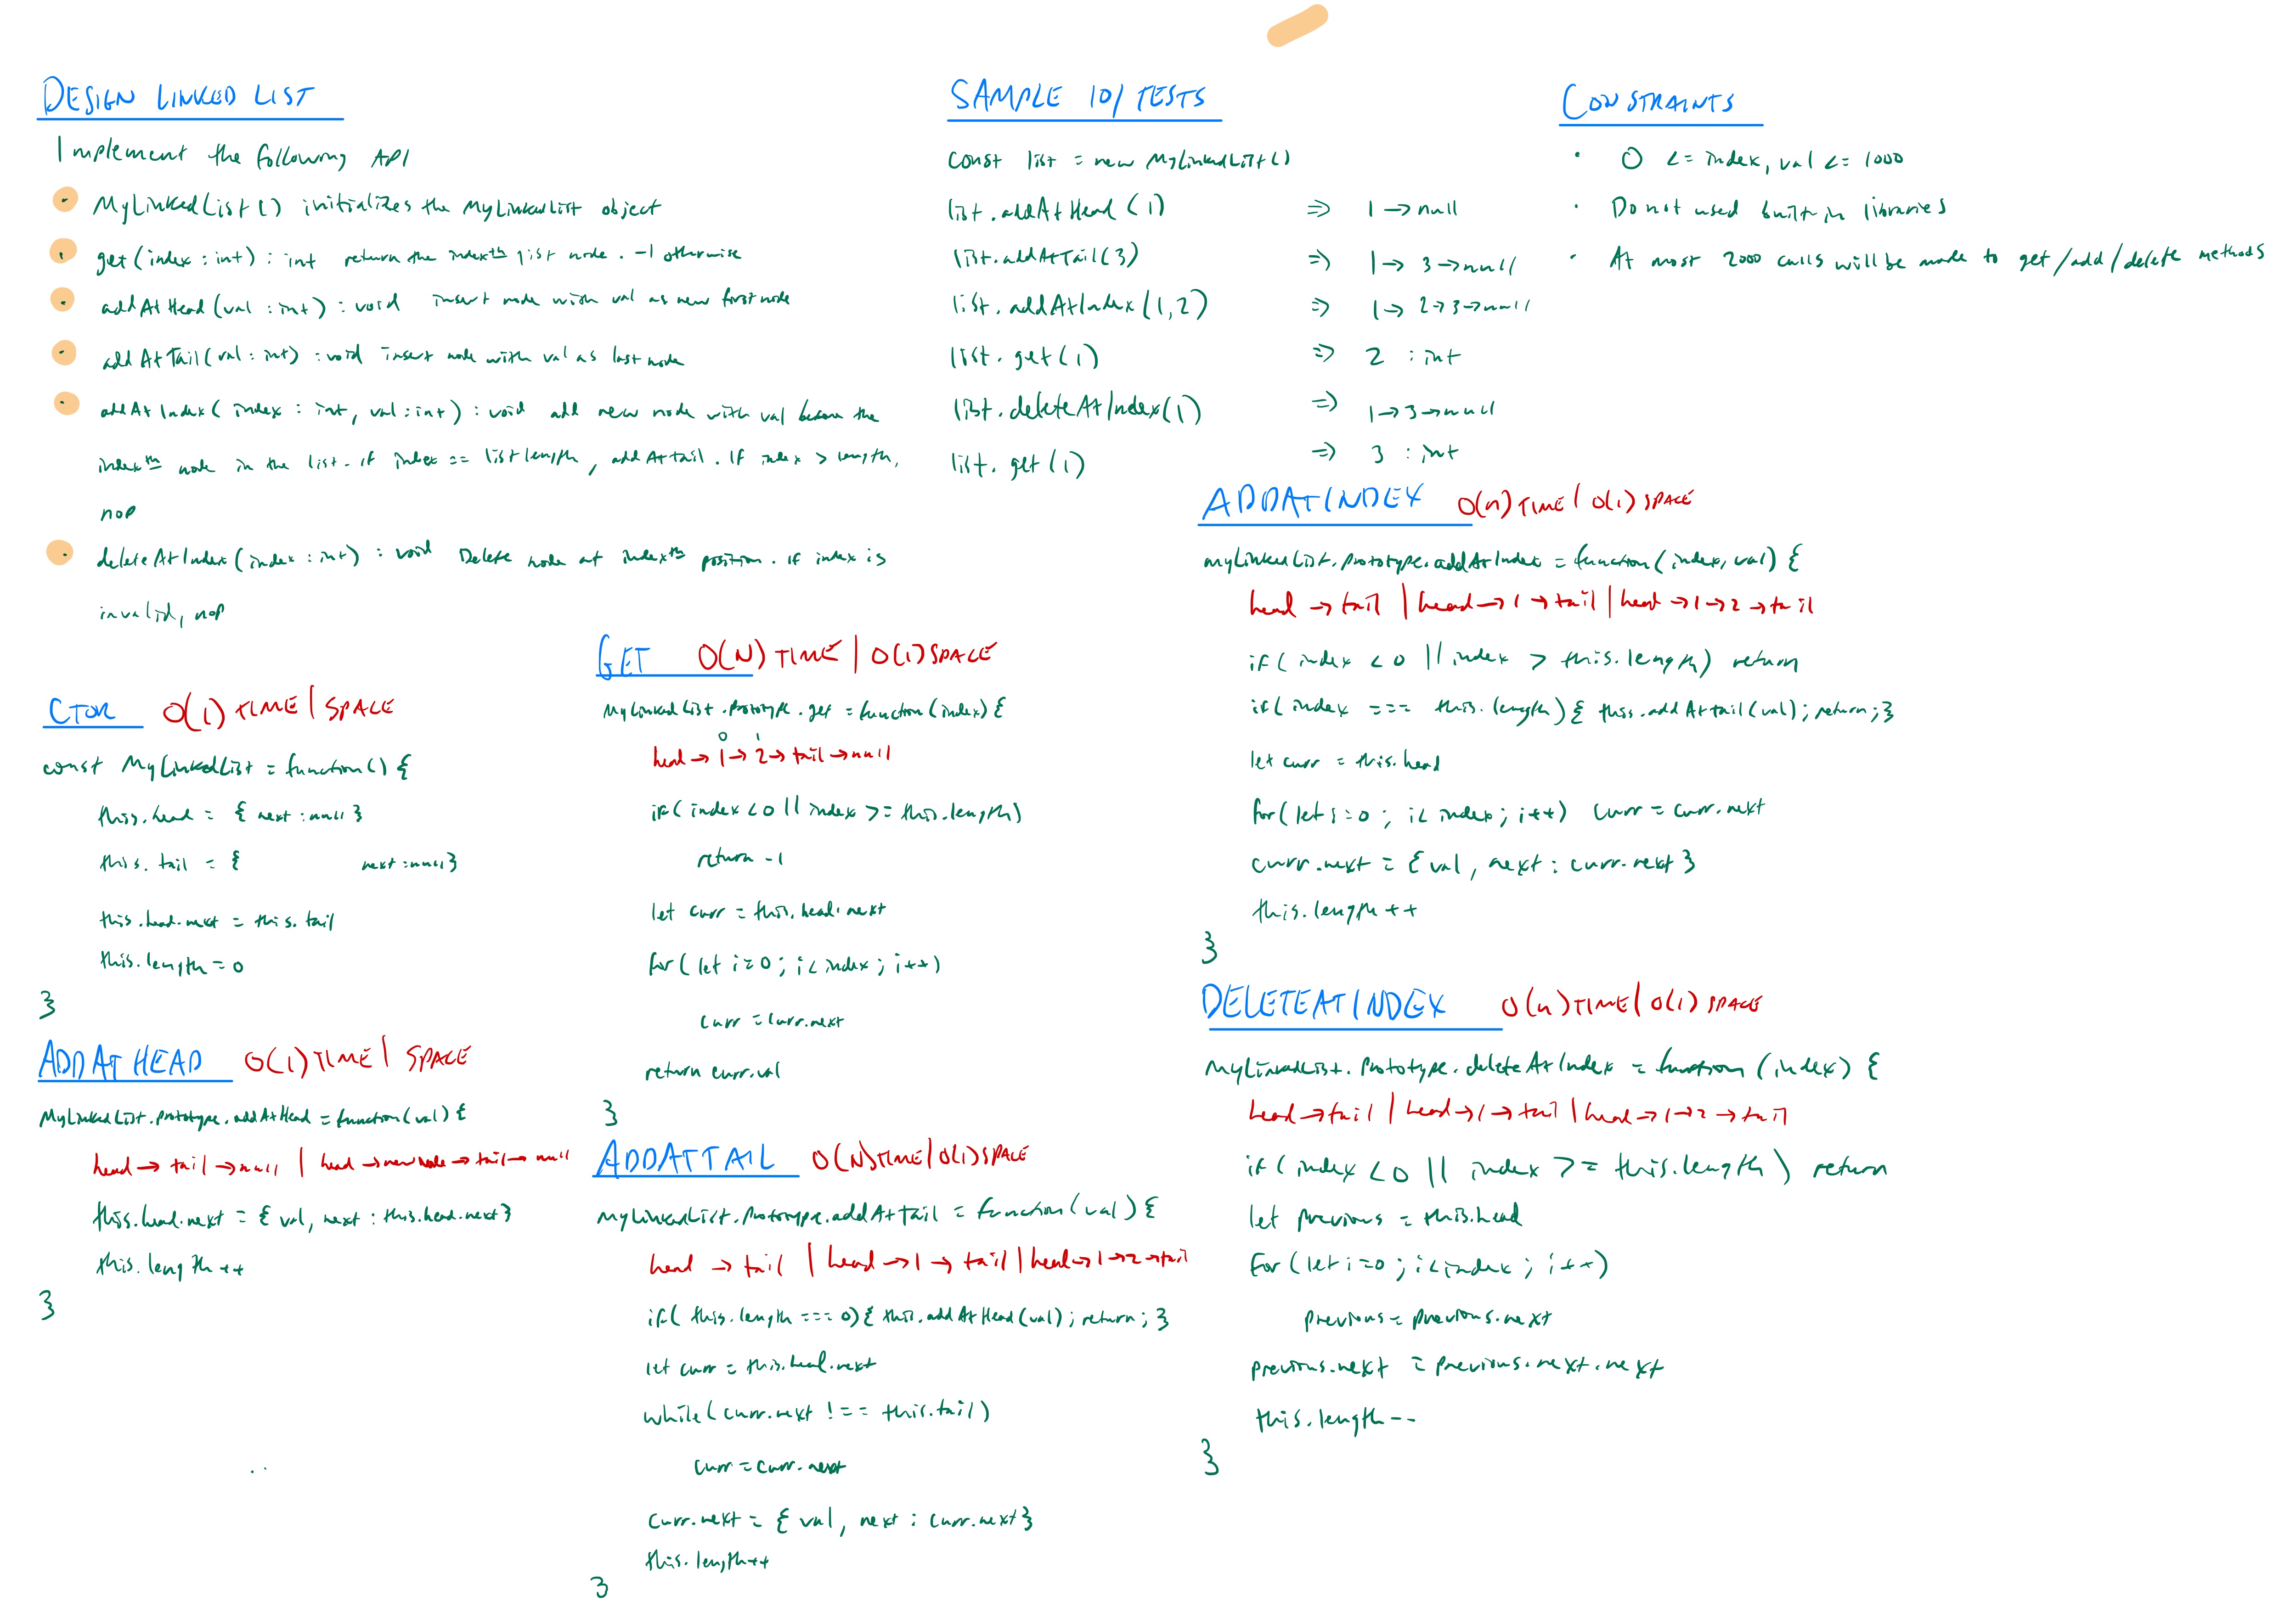 DESIGN LINKED LIST
Implement the following API
· MyLinkedList() initializes the MyLinkedList object
· get(index : int) : int return the indexth list node. -1 otherwise
· addAtHead(val : int) : void insert node with val as new first node
· addAtTail(val : int) : void insert node with val as last node
· addAtIndex(index : int, val : int) : void add new node with val before the
indexth node in the list. if index == list length, addAtTail. If index > length,
nop
· deleteAtIndex(index : int) : void Delete node at indexth position. if index is
invalid, nop
SAMPLE IO/TESTS
const list = new MyLinkedList()
list.addAtHead(1) => 1 → null
list.addAtTail(3) => 1 → 3 → null
list.addAtIndex(1,2) => 1 → 2 → 3 → null
list.get(1) => 2 : int
list.deleteAtIndex(1) => 1 → 3 → null
list.get(1) => 3 : int
CONSTRAINTS
· 0 <= index, val <= 1000
· Do not used built-in libraries
· At most 2000 calls will be made to get/add/delete methods
CTOR O(1) TIME | SPACE
const MyLinkedList = function() {
this.head = { next : null }
this.tail = { next : null }
this.head.next = this.tail
this.length = 0
}
ADDATHEAD O(1) TIME | SPACE
MyLinkedList.prototype.addAtHead = function(val) {
head → tail → null | head → newnode → tail → null
this.head.next = { val, next : this.head.next }
this.length++
}
GET O(N) TIME | O(1) SPACE
MyLinkedList.prototype.get = function(index) {
0 1
head → 1 → 2 → tail → null
if(index < 0 || index >= this.length)
return -1
let curr = this.head.next
for(let i = 0 ; i < index ; i++)
curr = curr.next
return curr.val
}
ADDATTAIL O(N) TIME | O(1) SPACE
MyLinkedList.prototype.addAtTail = function(val) {
head → tail | head → 1 → tail | head → 1 → 2 → tail
if( this.length === 0) { this.addAtHead(val) ; return ; }
let curr = this.head.next
while(curr.next !== this.tail)
curr = curr.next
curr.next = { val, next : curr.next }
this.length++
}
ADDATINDEX O(n) TIME | O(1) SPACE
MyLinkedList.prototype.addAtIndex = function(index, val) {
head → tail | head → 1 → tail | head → 1 → 2 → tail
if( index < 0 || index > this.length) return
if( index === this.length) { this.addAtTail(val) ; return ; }
let curr = this.head
for(let i = 0 ; i < index ; i++) curr = curr.next
curr.next = { val, next : curr.next }
this.length++
}
DELETEATINDEX O(n) TIME | O(1) SPACE
MyLinkedList.prototype.deleteAtIndex = function (index) {
head → tail | head → 1 → tail | head → 1 → 2 → tail
if( index < 0 || index >= this.length ) return
let previous = this.head
for(let i = 0 ; i < index ; i++)
previous = previous.next
previous.next = previous.next.next
this.length--
}